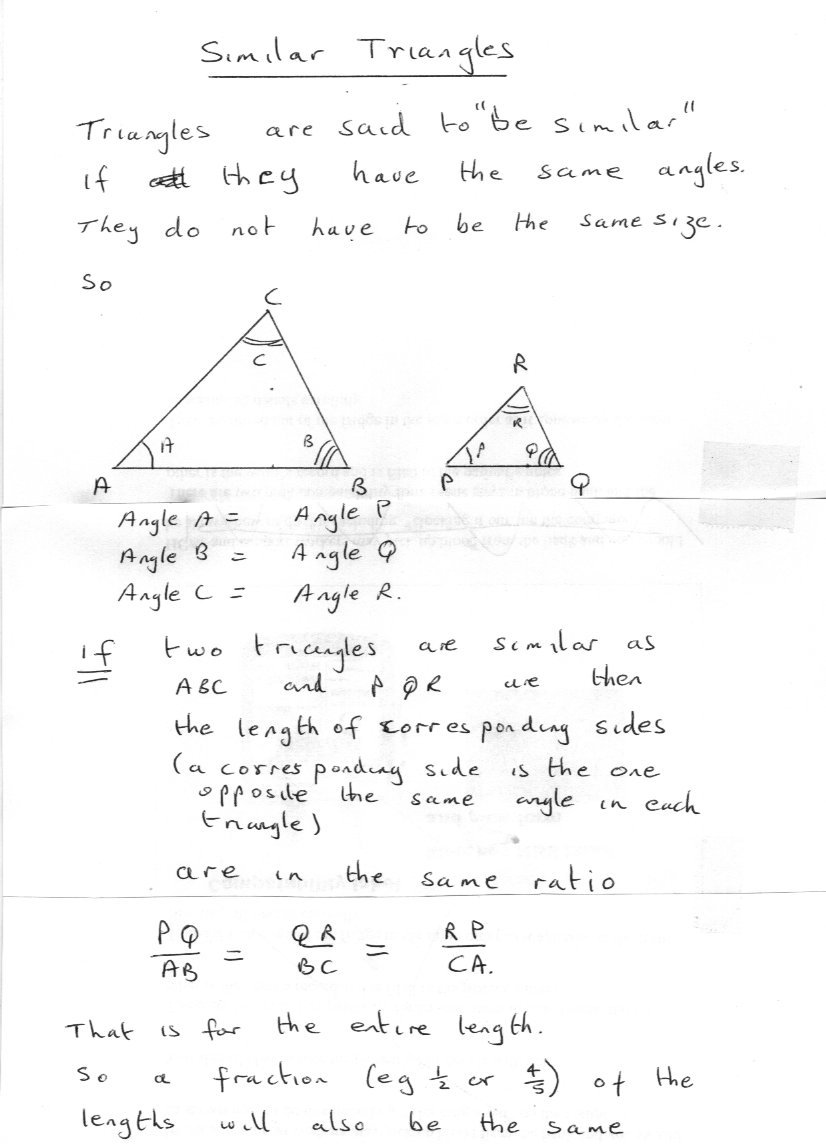 Similar Triangles
Triangles are said to "be similar"
if they have the same angles.
They do not have to be the same size.
So
C
C
R
R
A
B
P
Q
A
B
P
Q
Angle A = Angle P
Angle B = Angle Q
Angle C = Angle R.
if two triangles are similar as
ABC and PQR are then
the length of corresponding sides
(a corresponding side is the one
opposite the same angle in each
triangle)
are in the same ratio
PQ/AB = QR/BC = RP/CA.
That is for the entire length.
So a fraction (eg 1/2 or 4/5) of the
lengths will also be the same